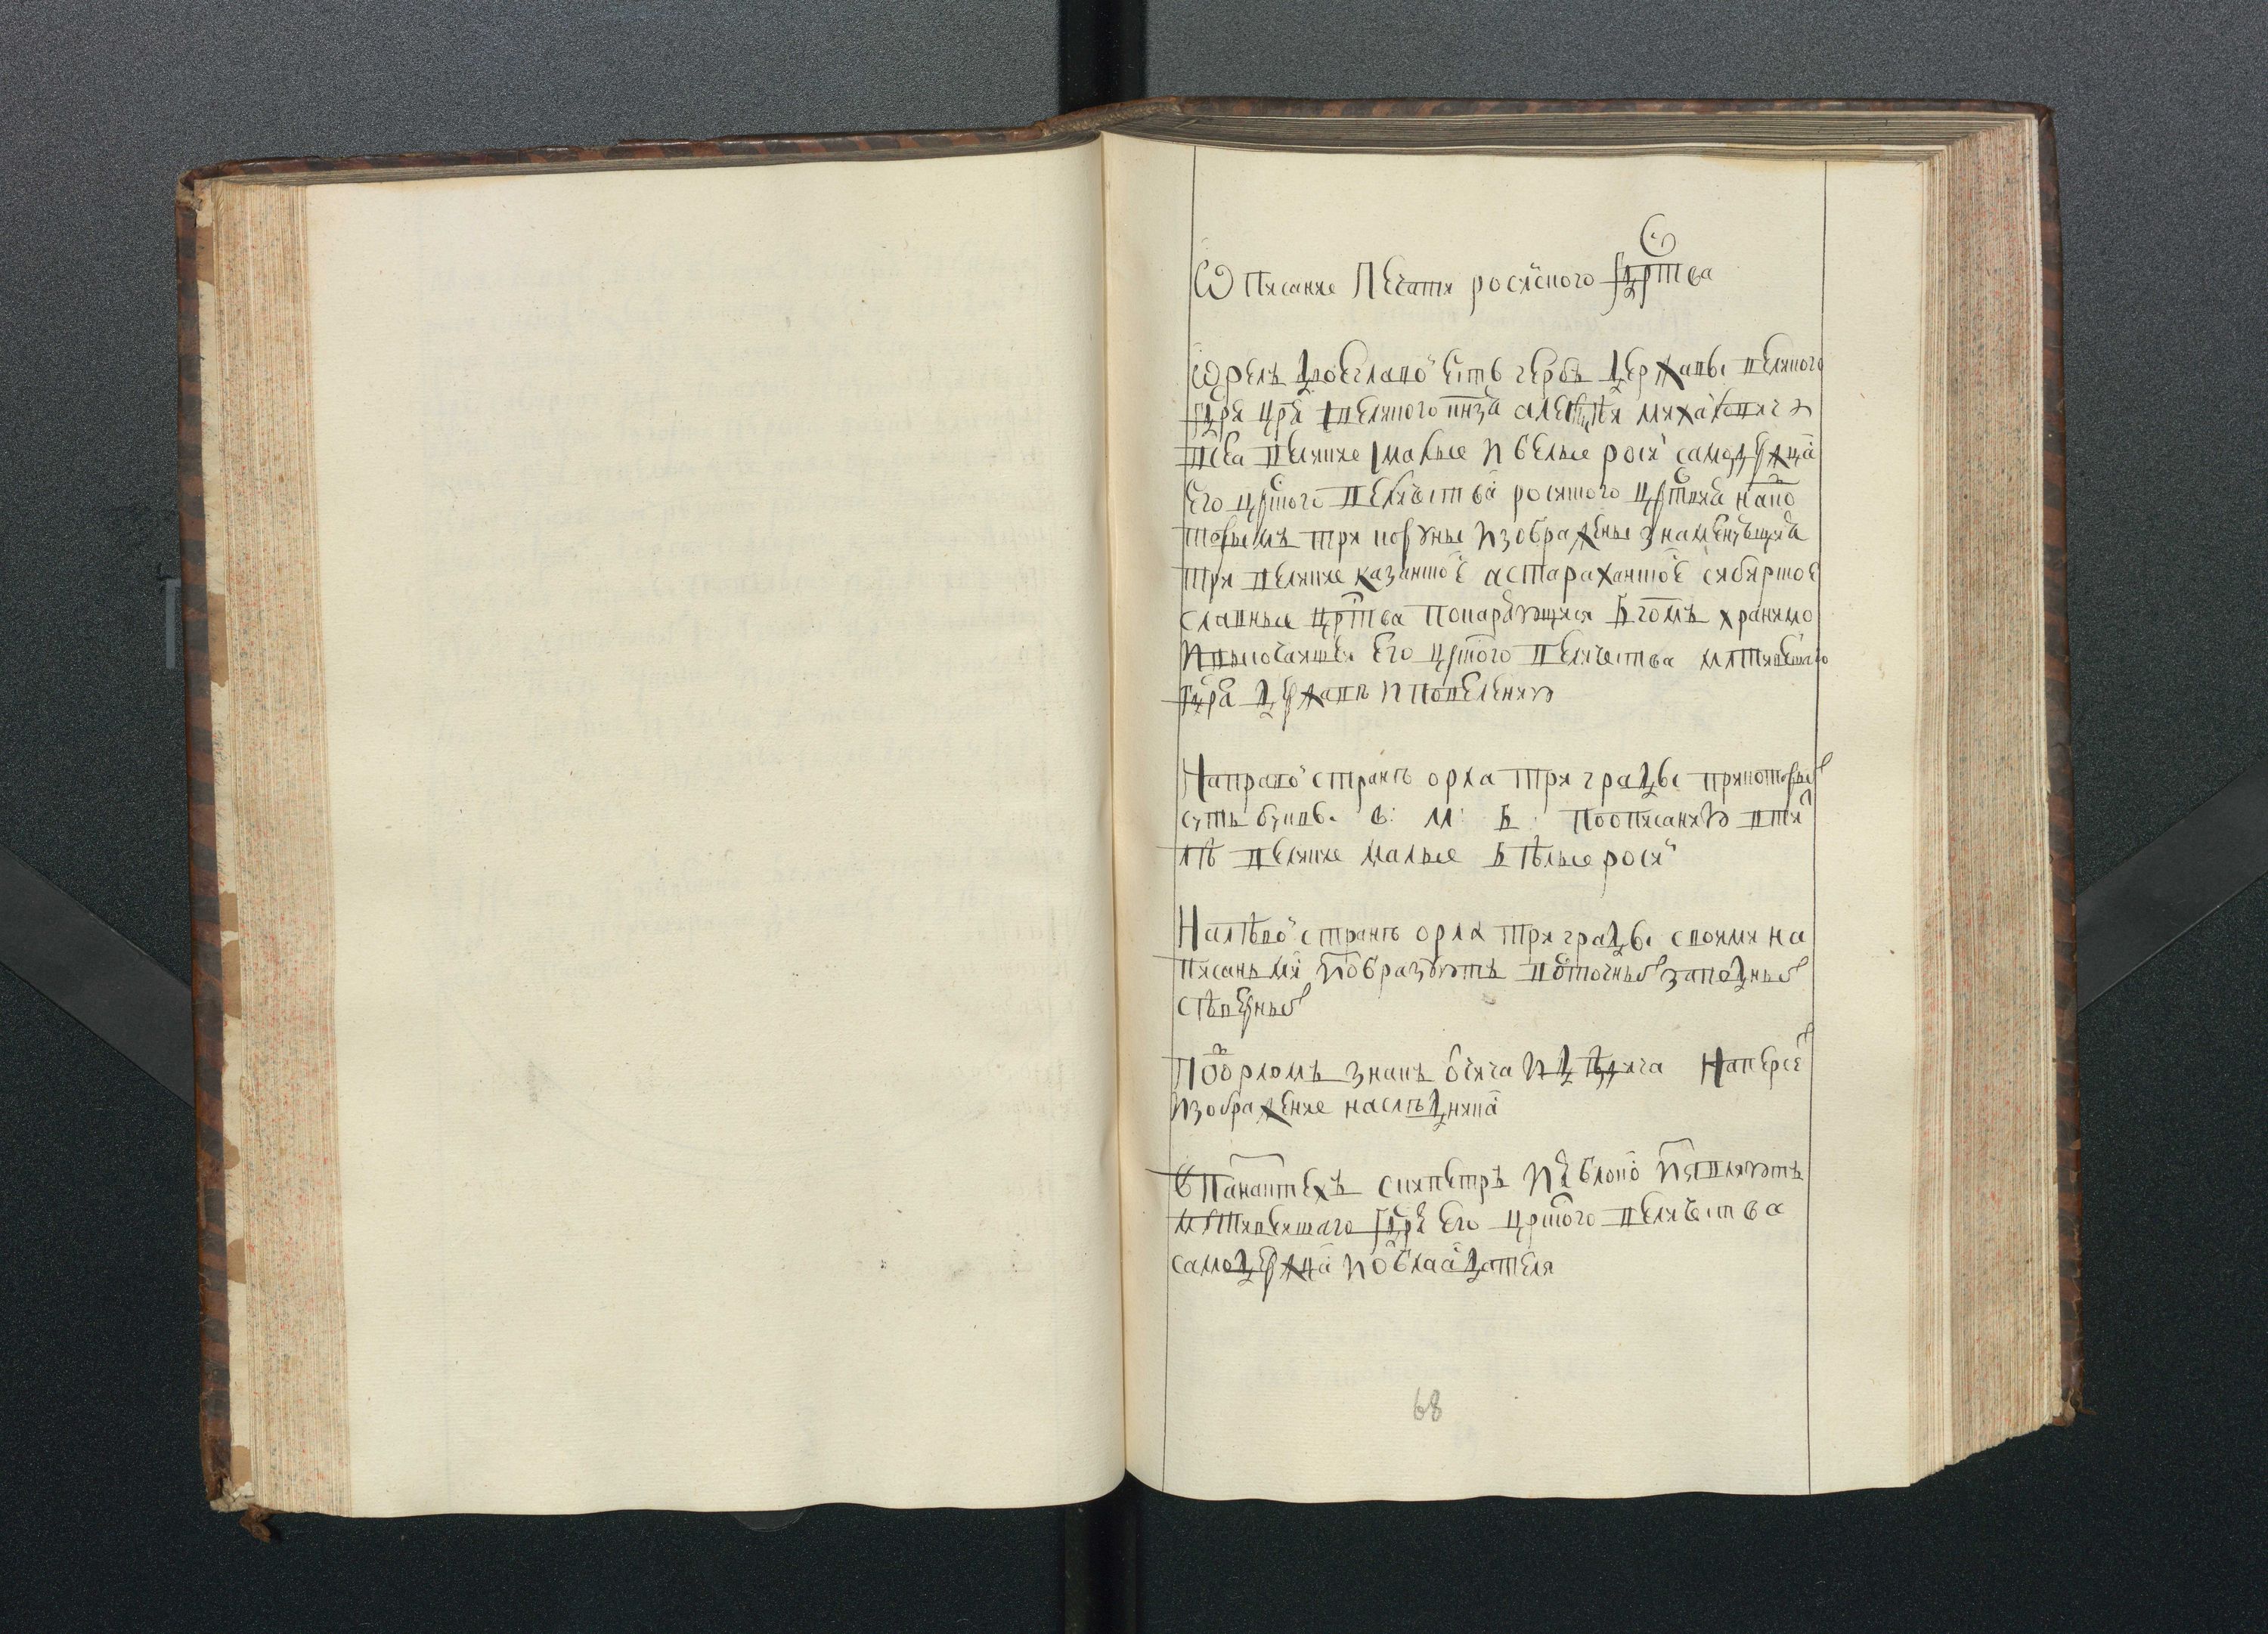 Ѡписание Печати росиского гдр҃ства
Ѡрелъ двоеглаво естъ гербъ державы великого
гдр҃я цр҃я и великого кнз҃а алеѯѣя михаиловича
всеа великие и малые и белые росиї самодержца
Его цр҃кого величества росиского цр҃твия на ко
торыхъ три коруны изображены знаменующия
три великие казанское астараханское сибирское
славные цр҃тва покаряющися Бг҃омъ хранимо
и высочаише Его цр҃кого величества млтивешаго
гдр҃а державѣ и повелению
На право странѣ орла три грады при которых
суть буквы в: м: Б: по описанию в ти
лѣ великие малые Бѣлые росиї
На лѣво странѣ орла три грады своими на
писаньми образуютъ восточных западных
сѣверных
Под орломъ знакъ отчича и дѣдича На персех
изображение наслѣдника
В пакахтехъ скипетръ и яблоко изъявляютъ
млтивеишаго гдр҃я Его цр҃кого величества
самодержца и облаадателя
68